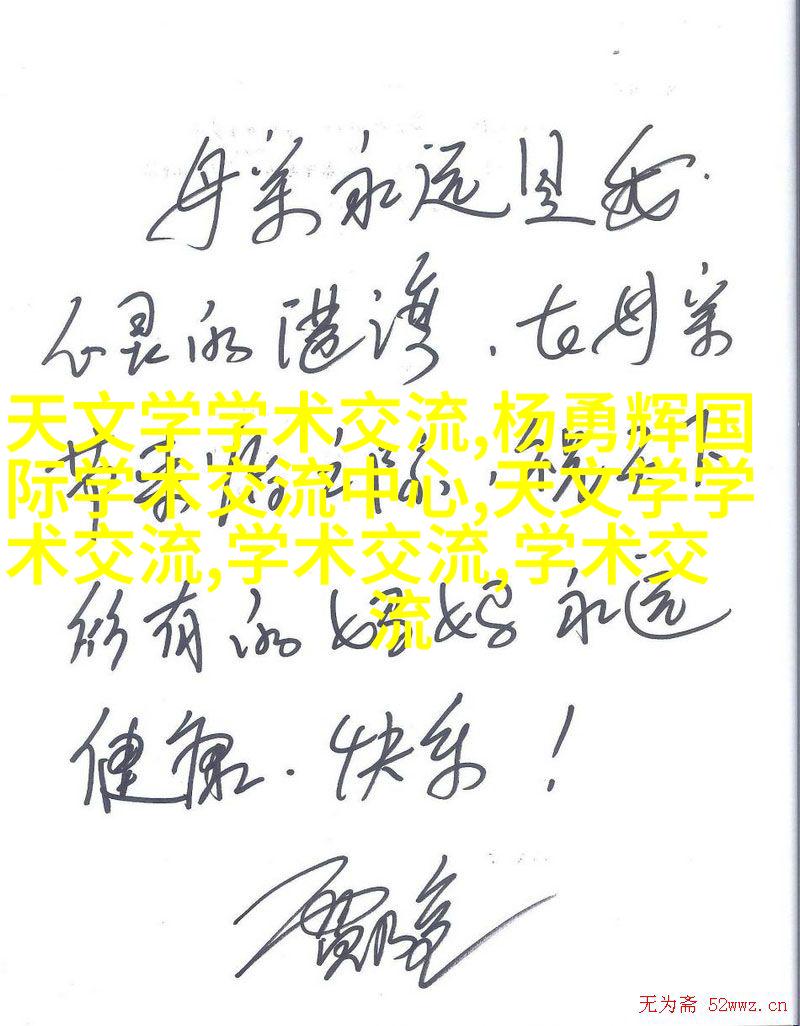 母亲永远是我
心灵的港湾,在母亲
天文学学术交流,杨勇辉国
际学术交流中心,天文学学
术交流,学术交流,学术交
流
节来临之际,祝天下
所有的妈妈永远
健康.快乐!
无为斋 52wwz.cn